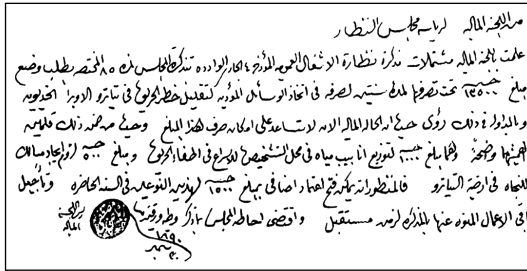 من اللجنة المالية لرياسة مجلس النظار
علمت اللجنة المالية مشتملات مذكرة نظارة الاشغال العمومية المؤرخة الجاري الواردة بتذكرة المجلس نمرة ٨٥ المختصة بطلب وضع
مبلغ ١٣٥٠٠ جنيه تحت تصرفها لمدة سنتين لصرفه في اتخاذ الوسائل المؤدية لتقليل خطر الحريق في تياترو الاوبرا الخديوية
وبالمداولة في ذلك رؤى حيث ان الحالة المالية الان لا تساعد على امكان صرف هذا المبلغ وحيث من ضمن ذلك
مبلغ جنيه لتوزيع انابيب مياه في محل التشخيص للاسراع في اطفاء الحريق ومبلغ ٥٠٠ جنيه لزوم ايجاد مسالك
للنجاة في ارضية التياترو فالمنظور انه يمكن فتح اعتماد اضافي بمبلغ ١٥٠٠ جنيه لهذين النوعين في السنة الحاضرة وتأجيل
باقي الاعمال المنوه عنها بالمذكرة لفرصة مستقبل واقتضى لاحاطة المجلس بما ذكر
اللجنة المالية